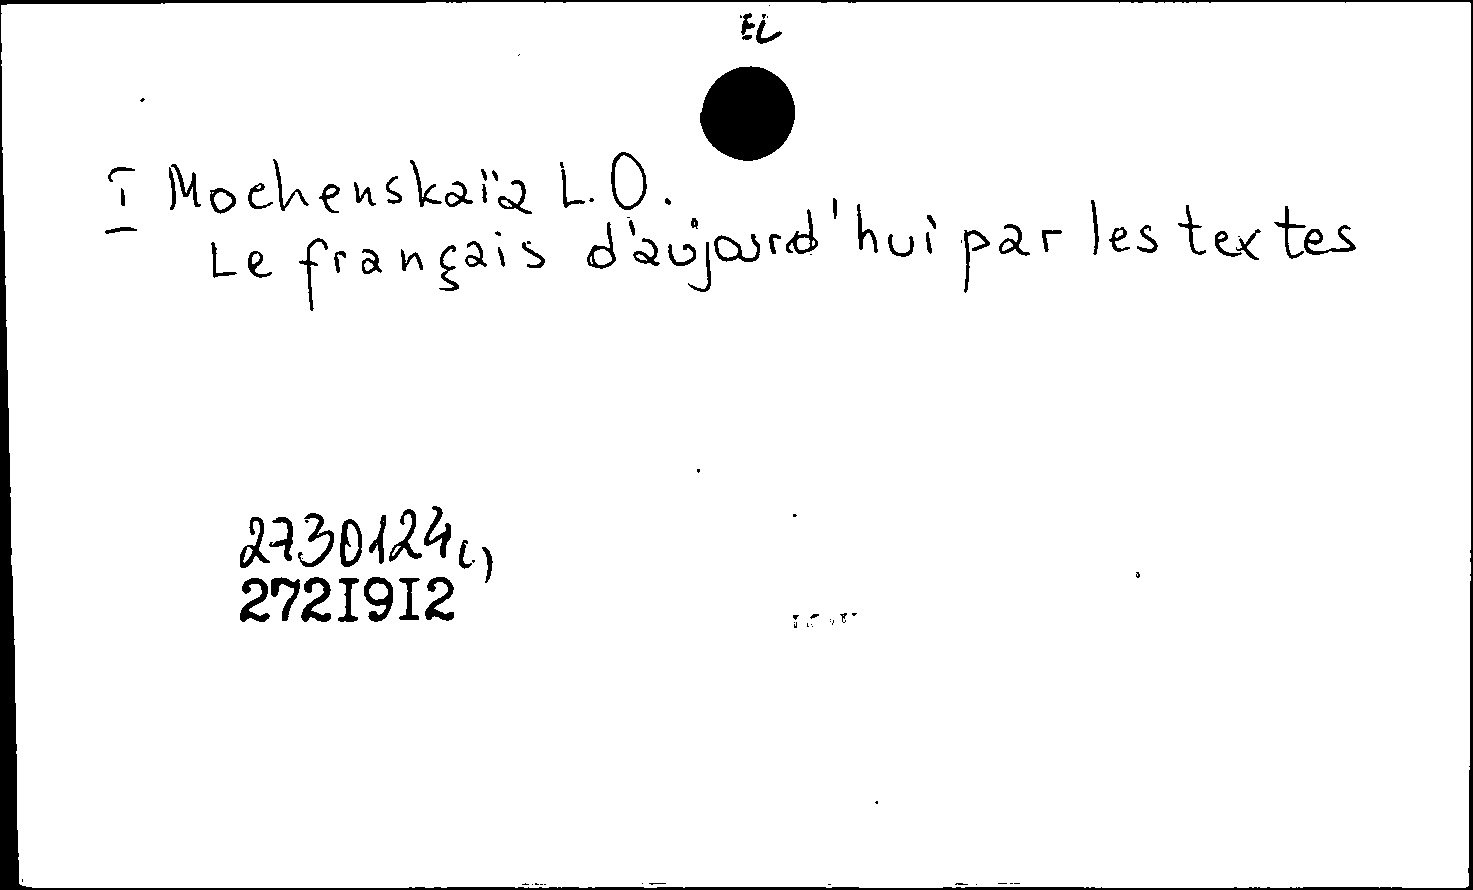 EL
I Mochenskaïa L.O.
Le français d'aujourd'hui par les textes
2730124
272I9I2